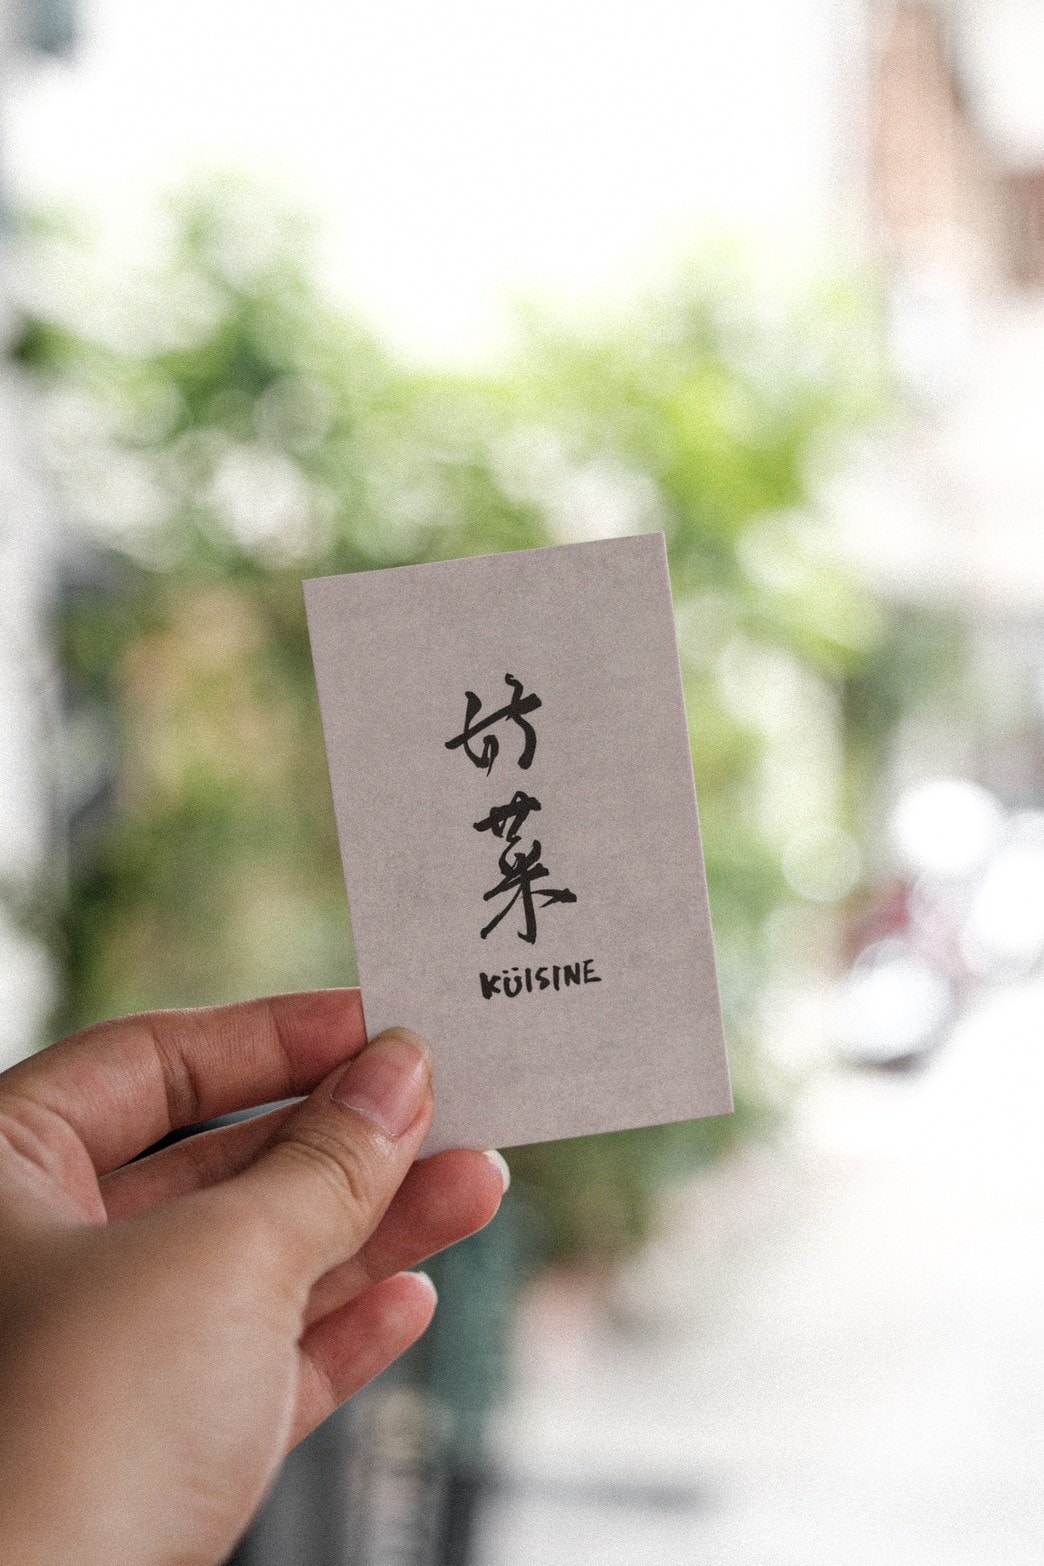 菜
KÜISINE